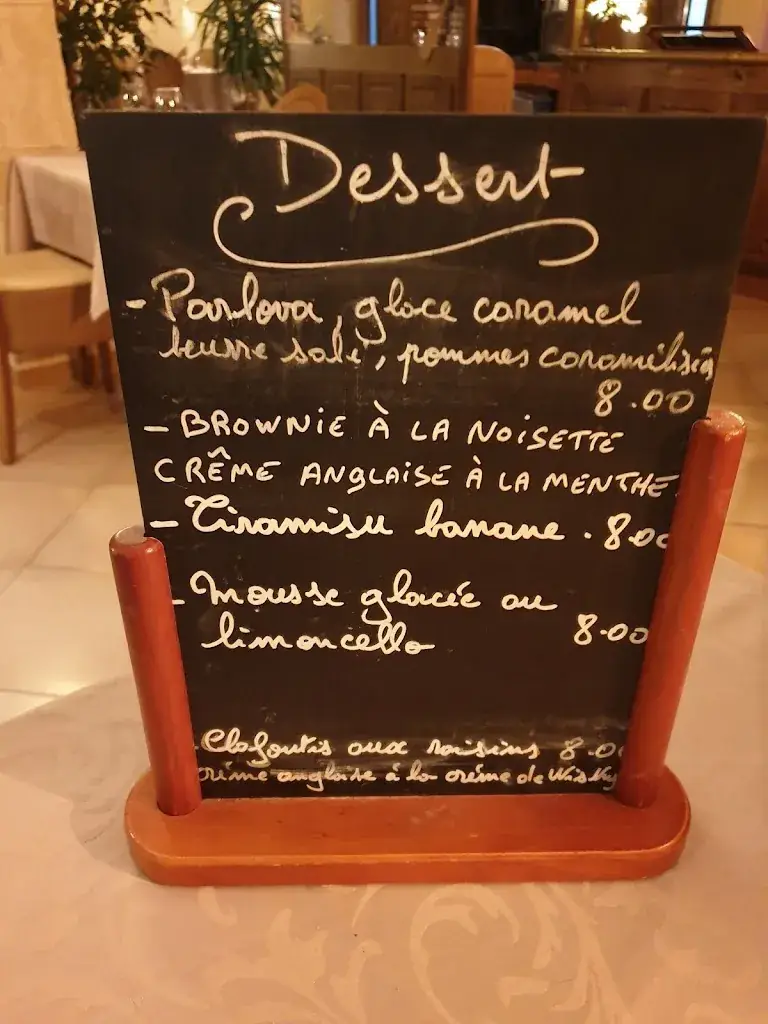 Dessert
- Pavlova, glace caramel
beurre salé, pommes caramélisés
8.00
- BROWNIE À LA NOISETTE
CRÊME ANGLAISE À LA MENTHE
- Tiramisu banane . 8.00
- Mousse glacée au
limoncello 8.00
Clafoutis aux raisins 8.00
crème anglaise à la crème de Wisky